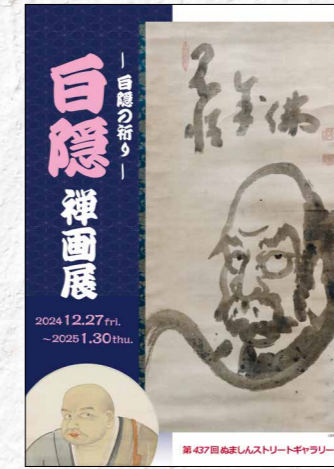 ― 白隠の祈り ―
白隠
禅画展
2024 12.27 fri.
～2025 1.30 thu.
見性
成
佛
第437回 ぬましんストリートギャラリー